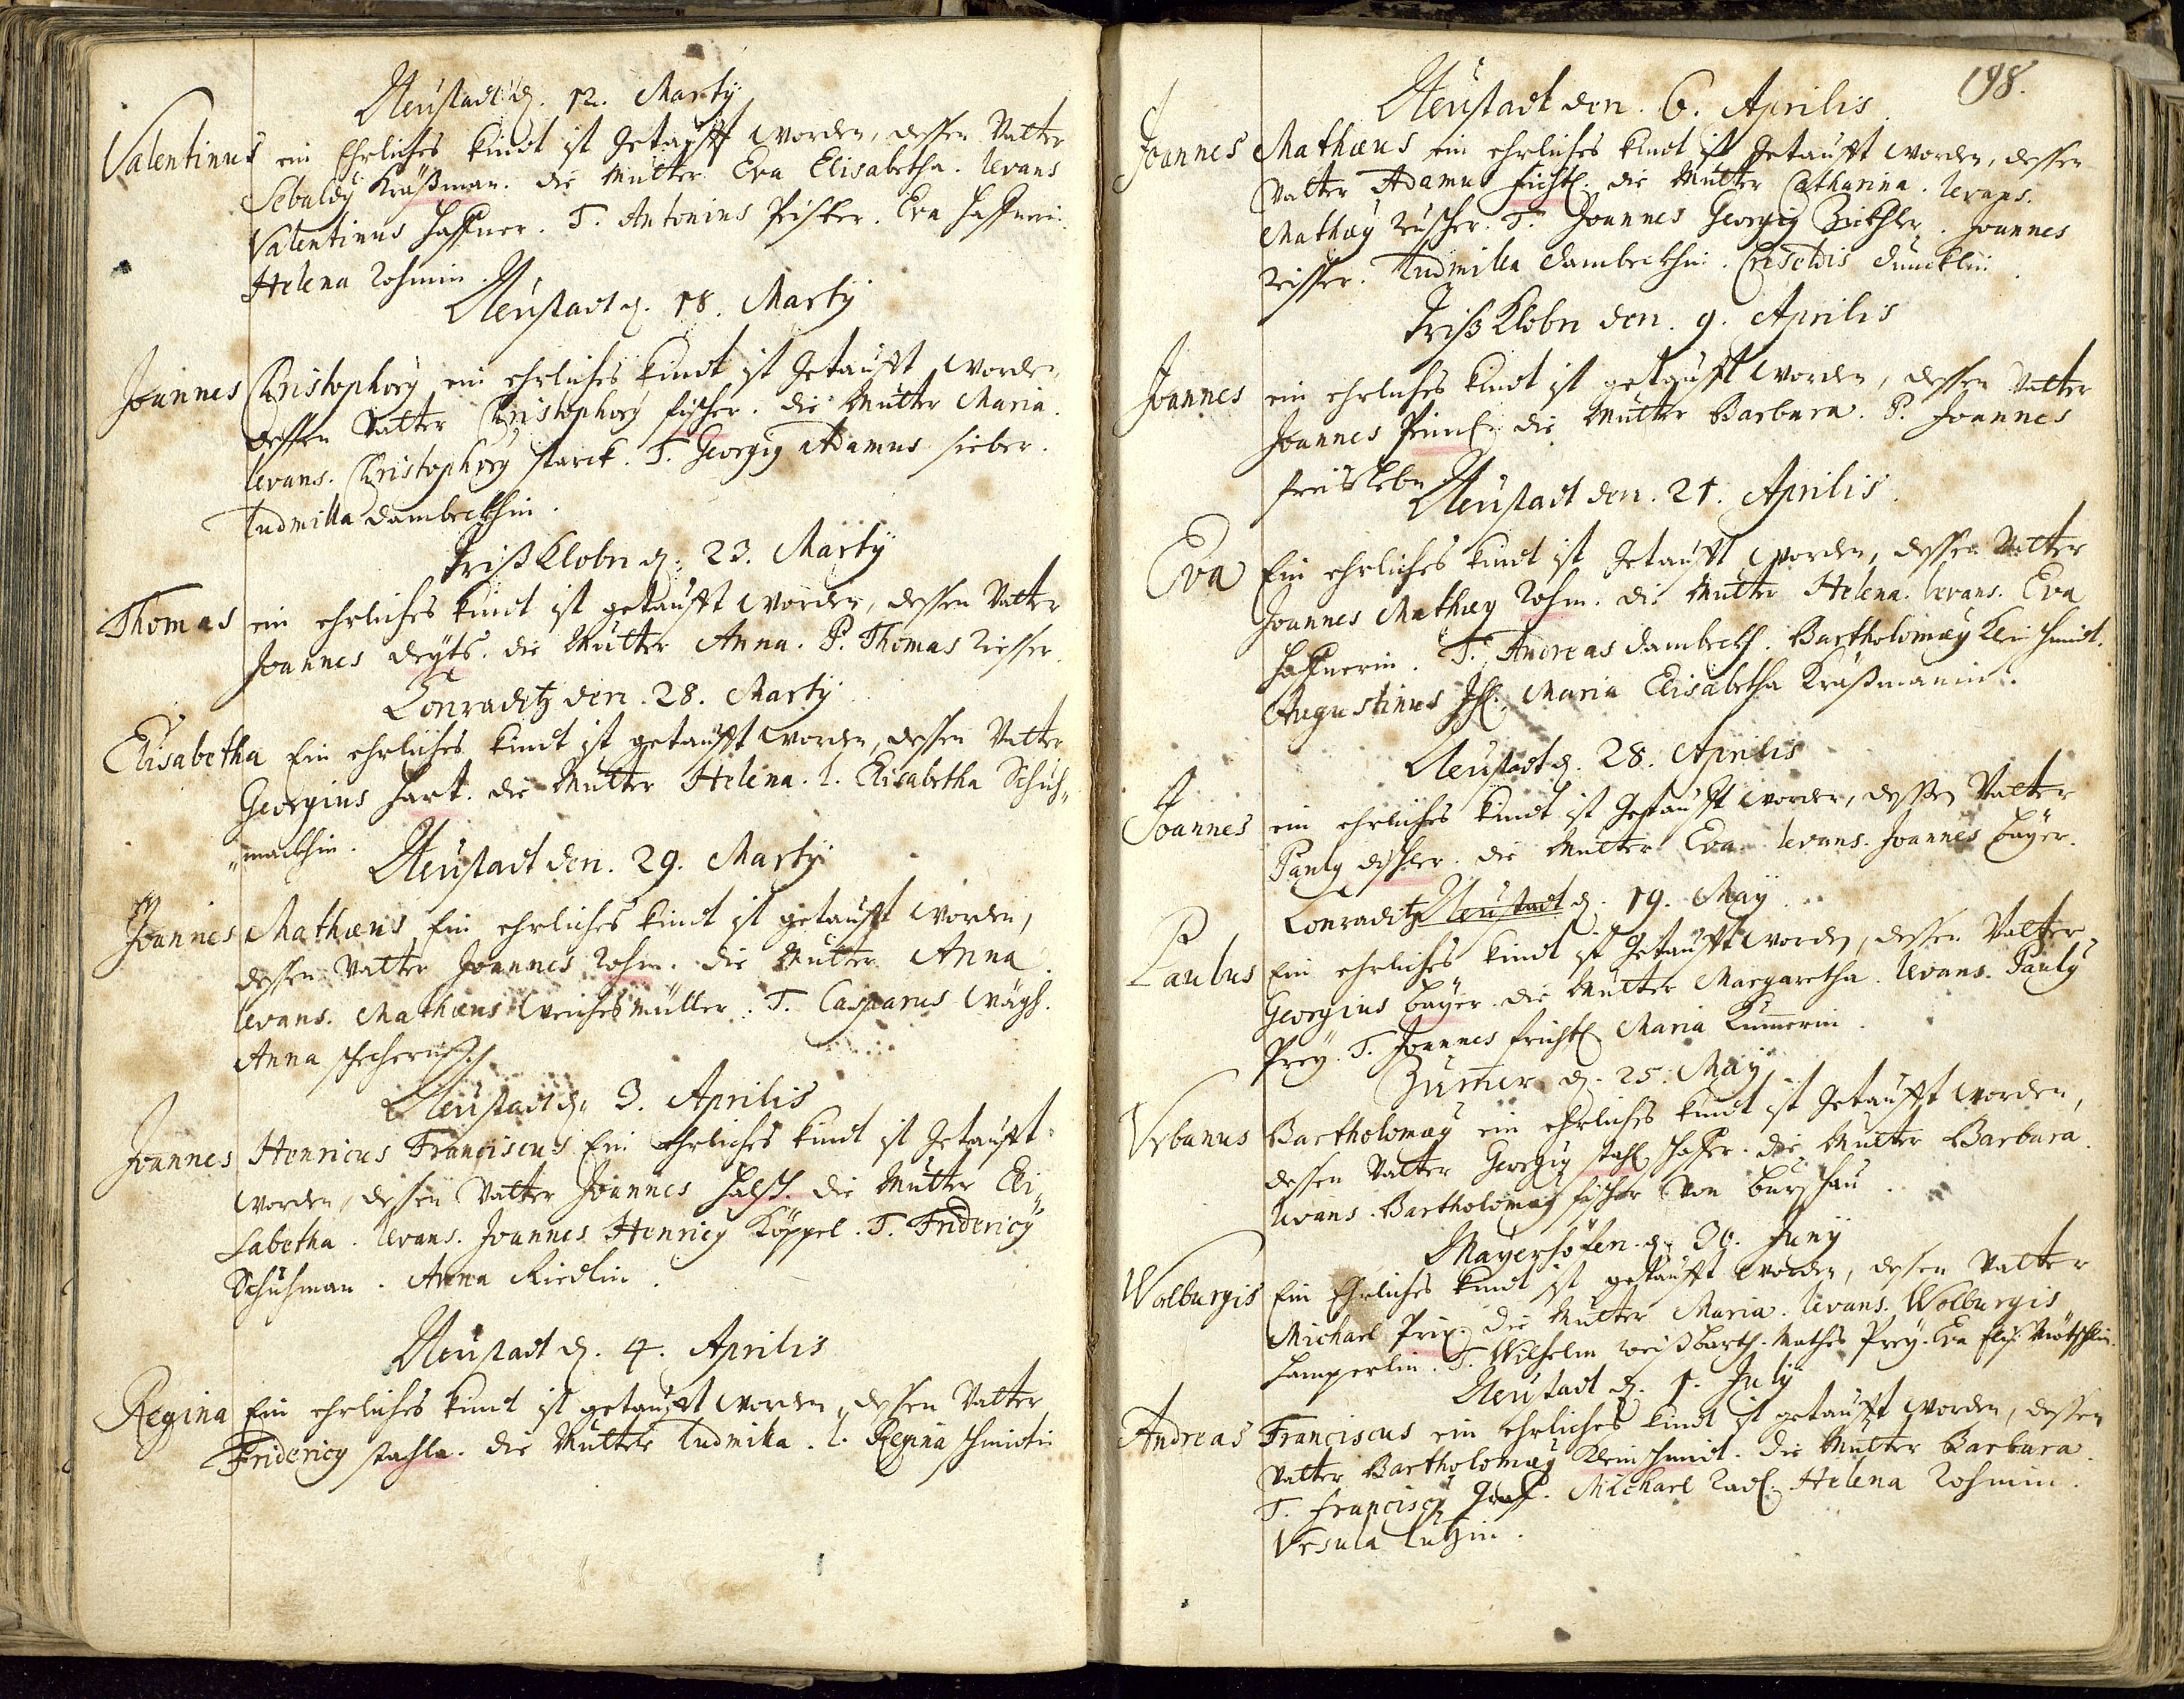 Neustadt d. 12. Marty
Valentinus ein Ehrliches kindt ist getaufft worden, dessen Vatter
Sebaldy Kräßman. die Mutter Eva Elisabetha. levans
Valentinus Haffner. T. Antonius Fister. Eva Haffnerin.
Helena Rohmin.
Neustadt d. 18. Marty
Joannes Christophorg ein ehrliches kindt ist getaufft worden,
dessen Vatter Christophorg fischer. die Mutter Maria.
levans. Christophorg starck. T. Georgig Adamus sieber.
Ludmilla dambeckhin.
Trißklobn d. 23. Marty
Thomas ein ehrliches kindt ist getaufft worden, dessen Vatter
Joannes deyts. die Mutter Anna. P. Thomas riesser.
Conraditz den. 28. Marty
Elisabetha Ein ehrliches kindt ist getaufft worden, dessen Vatter
Georgius hart. die Mutter Helena. l. Elisabetha Schuh„
„mackhin.
Neustadt den. 29. Marty
Joannes Mathæus Ein ehrliches kindt ist getaufft worden,
dessen Vatter Joannes Rohm. die Mutter Anna.
levans. Mathæus weichesmüller. T. Casparus
Anna
Neustadt d. 3. Aprilis
Joannes Henricus Franciscus Ein ehrliches kindt ist getaufft
worden, dessen Vatter Joannes die Mutter Eli„
sabetha. levans. Joannes Henricg Köppel. T. Fridericg
Schuhman. Anna Riedlin.
Neustadt d. 4. Aprilis
Regina Ein ehrliches kindt ist getaufft worden, dessen Vatter
Fridericg stahla. die Mutter Ludmilla. l. Regina schmidtin
198.
Neustadt den. 6. Aprilis
Joannes Mathæus ein ehrliches kindt ist getaufft worden, dessen
Vatter Adamus fichtl. die Mutter Catharina. levans.
Mathæg reischer. T. Joannes Georgig Joannes
reisser. Ludmilla dambeckhin. dunklin.
Trißklobn den. 9. Aprilis
Joannes ein ehrliches kindt ist getaufft worden, dessen Vatter
Joannes die Mutter Barbara. P. Joannes
Neustadt den. 21. Aprilis.
Eva Ein ehrliches kindt ist getaufft worden, dessen Vatter
Joannes Mathæg Rohm. die Mutter Helena. levans. Eva
Haffnerin. T. Andreas dambeckh. Bartholomæg Kleinschmidt.
Augustinus Maria Elisabetha Kräßmanin.
Neustadt d. 28. Aprilis
Joannes ein ehrliches kindt ist getaufft worden, dessen Vatter
Paulg dischler. die Mutter Eva. levans. Joannes bayer.
Conraditz Neustadt d. 19. May
Paulus Ein ehrliches kindt ist getaufft worden, dessen Vatter
Georgius bayer. die Mutter Margaretha. levans. Paulg
Prey. T. Joannes Maria Kumerin.
Zumer d. 25. May
Vrbanus Bartholomæg ein ehrliches kindt ist getaufft worden,
dessen Vatter Georgig stahl schaffer. die Mutter Barbara.
levans. Bartholomæg fischer von
Mayershöfen. d. 30. Juny
Wolburgis Ein Ehrliches kindt ist getaufft worden, dessen Vatter
Michael Prix. die Mutter Maria. levans. Wolburgis
Lamperlin. T. Wilhelm weißbarth. Mathes Prey. Eva
Neustadt d. 1. July
Andreas Franciscus ein ehrliches kindt ist getaufft worden, dessen
Vatter Bartholomæg Kleinschmidt. die Mutter Barbara.
T. Franciscg Graff. Michael Radl. Helena Rohmin.
Vrsula Lutzin.